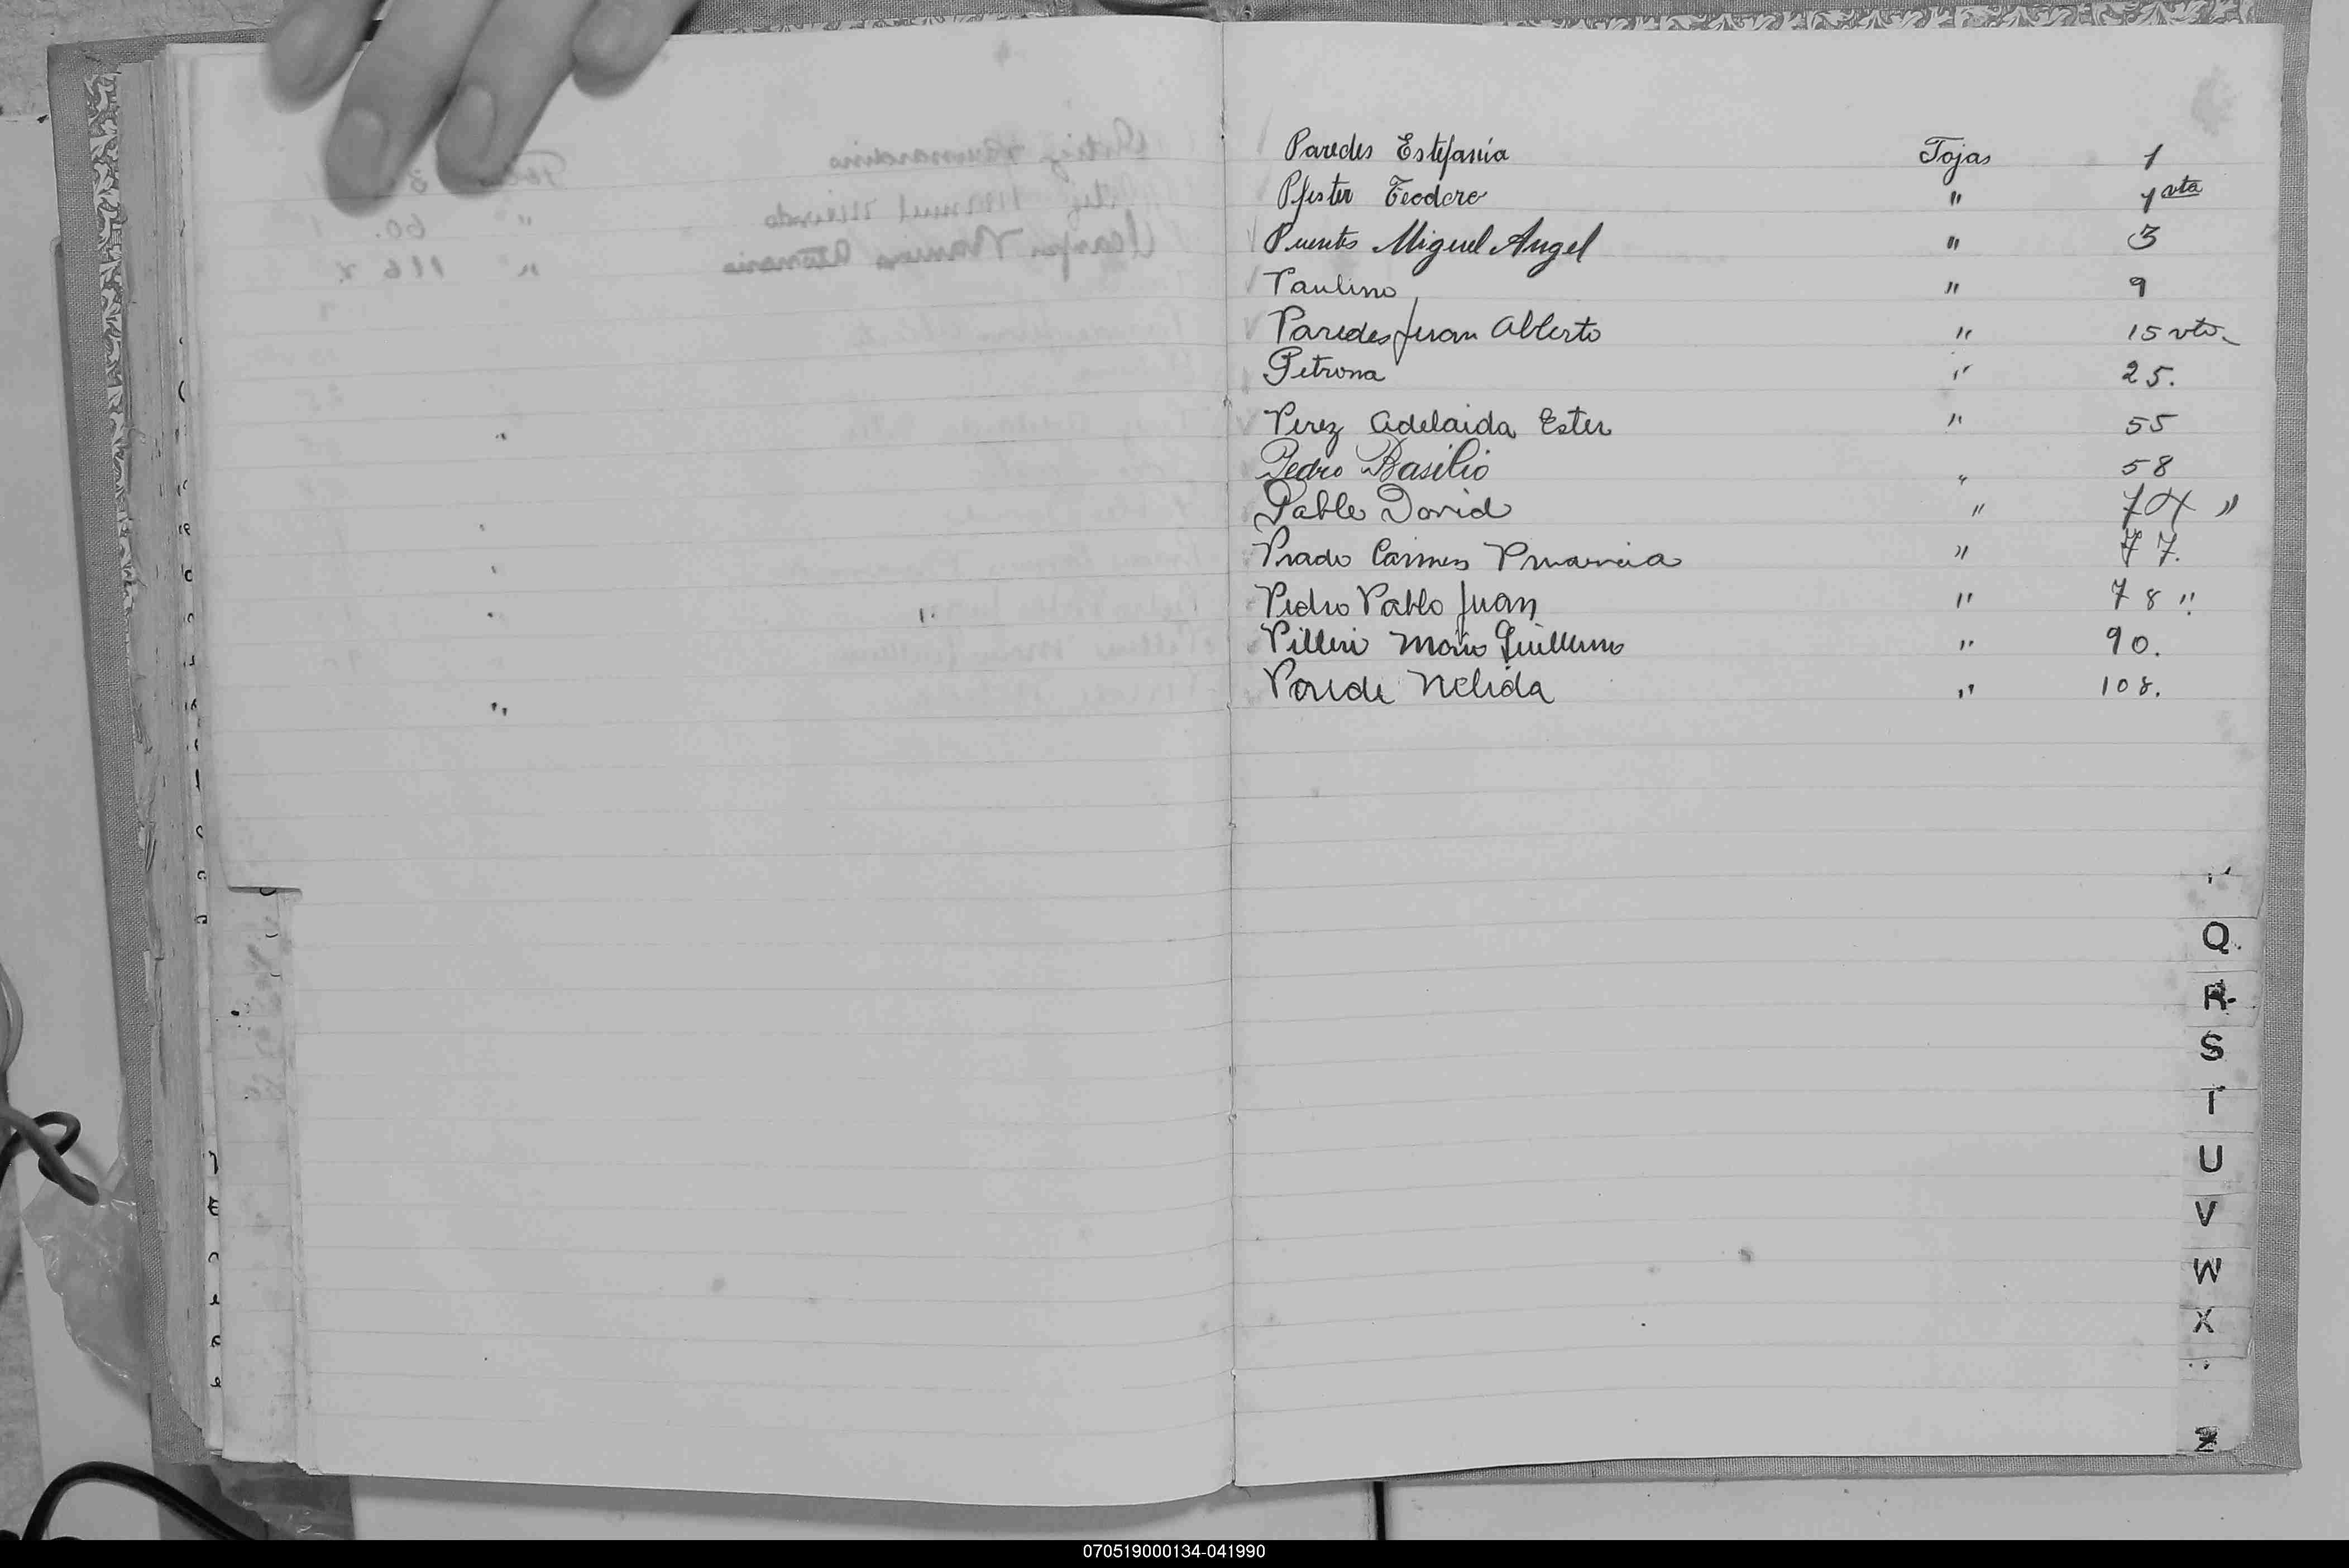 Paredes Estefanía Fojas 1
Pfister Teodoro " 1 vta
Puentes Miguel Angel " 3
Paulino " 9
Paredes Juan Alberto " 15 vto.
Petrona " 25.
Perez Adelaida Ester " 55
Pedro Basilio " 58
Pable David " 74 "
Prado Carmen " 77.
Pedro Pablo Juan " 78 "
Pilleri Mario Guillermo " 90.
Parede Nelida " 108.
Q
R
S
T
U
V
W
X
Z
070519000134-041990